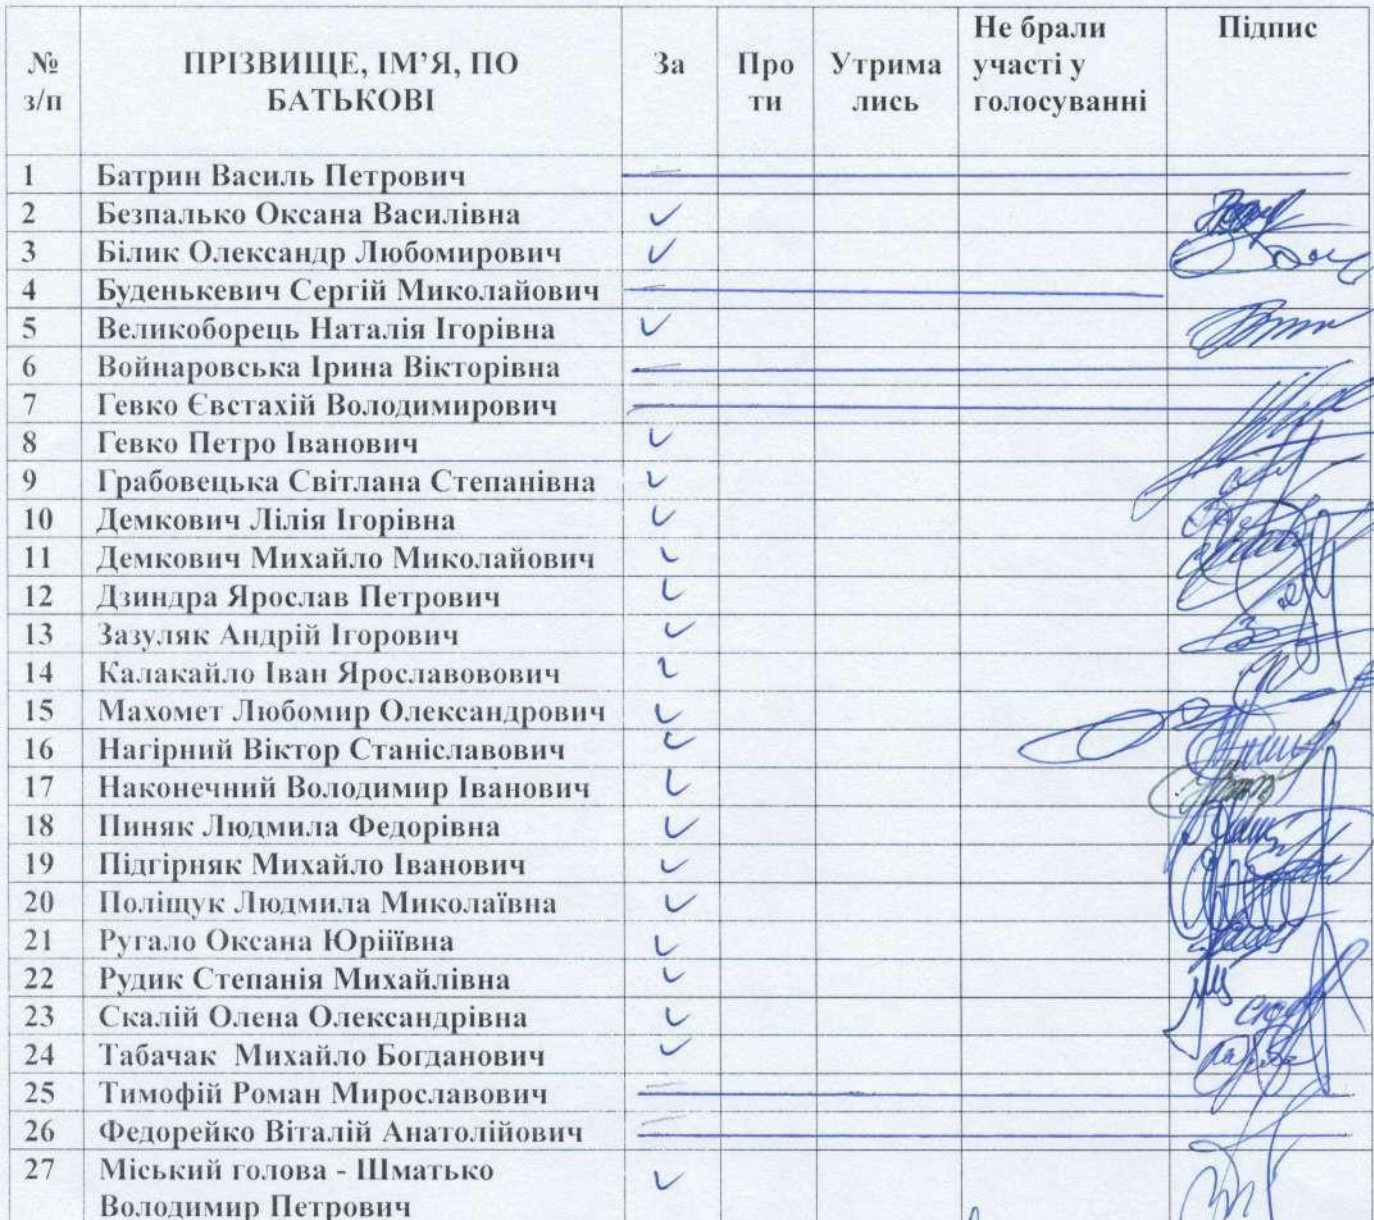 № з/п ПРІЗВИЩЕ, ІМ’Я, ПО БАТЬКОВІ За Про ти Утрима лись Не брали участі у голосуванні Підпис
1 Батрин Василь Петрович
2 Безпалько Оксана Василівна ✓
3 Білик Олександр Любомирович ✓
4 Буденькевич Сергій Миколайович
5 Великоборець Наталія Ігорівна ✓
6 Войнаровська Ірина Вікторівна
7 Гевко Євстахій Володимирович
8 Гевко Петро Іванович ✓
9 Грабовецька Світлана Степанівна ✓
10 Демкович Лілія Ігорівна ✓
11 Демкович Михайло Миколайович ✓
12 Дзиндра Ярослав Петрович ✓
13 Зазуляк Андрій Ігорович ✓
14 Калакайло Іван Ярославовович ✓
15 Махомет Любомир Олександрович ✓
16 Нагірний Віктор Станіславович ✓
17 Наконечний Володимир Іванович ✓
18 Пиняк Людмила Федорівна ✓
19 Підгірняк Михайло Іванович ✓
20 Поліщук Людмила Миколаївна ✓
21 Ругало Оксана Юрііївна ✓
22 Рудик Степанія Михайлівна ✓
23 Скалій Олена Олександрівна ✓
24 Табачак Михайло Богданович ✓
25 Тимофій Роман Мирославович
26 Федорейко Віталій Анатолійович
27 Міський голова - Шматько
Володимир Петрович ✓